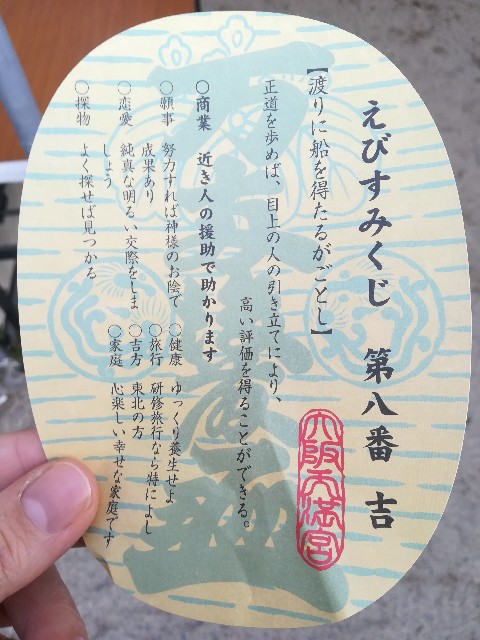 えびすみくじ 第八番 吉
【渡りに船を得たるがごとし】
正道を歩めば、目上の人の引き立てにより、
高い評価を得ることができる。
○商業 近き人の援助で助かります
○願事 努力すれば神様のお陰で
成果あり
○恋愛 純真な明るい交際をしま
しょう
○探物 よく探せば見つかる
○健康 ゆっくり養生せよ
○旅行 研修旅行なら特によし
○吉方 東北の方
○家庭 心楽しい幸せな家庭です
大阪天満宮